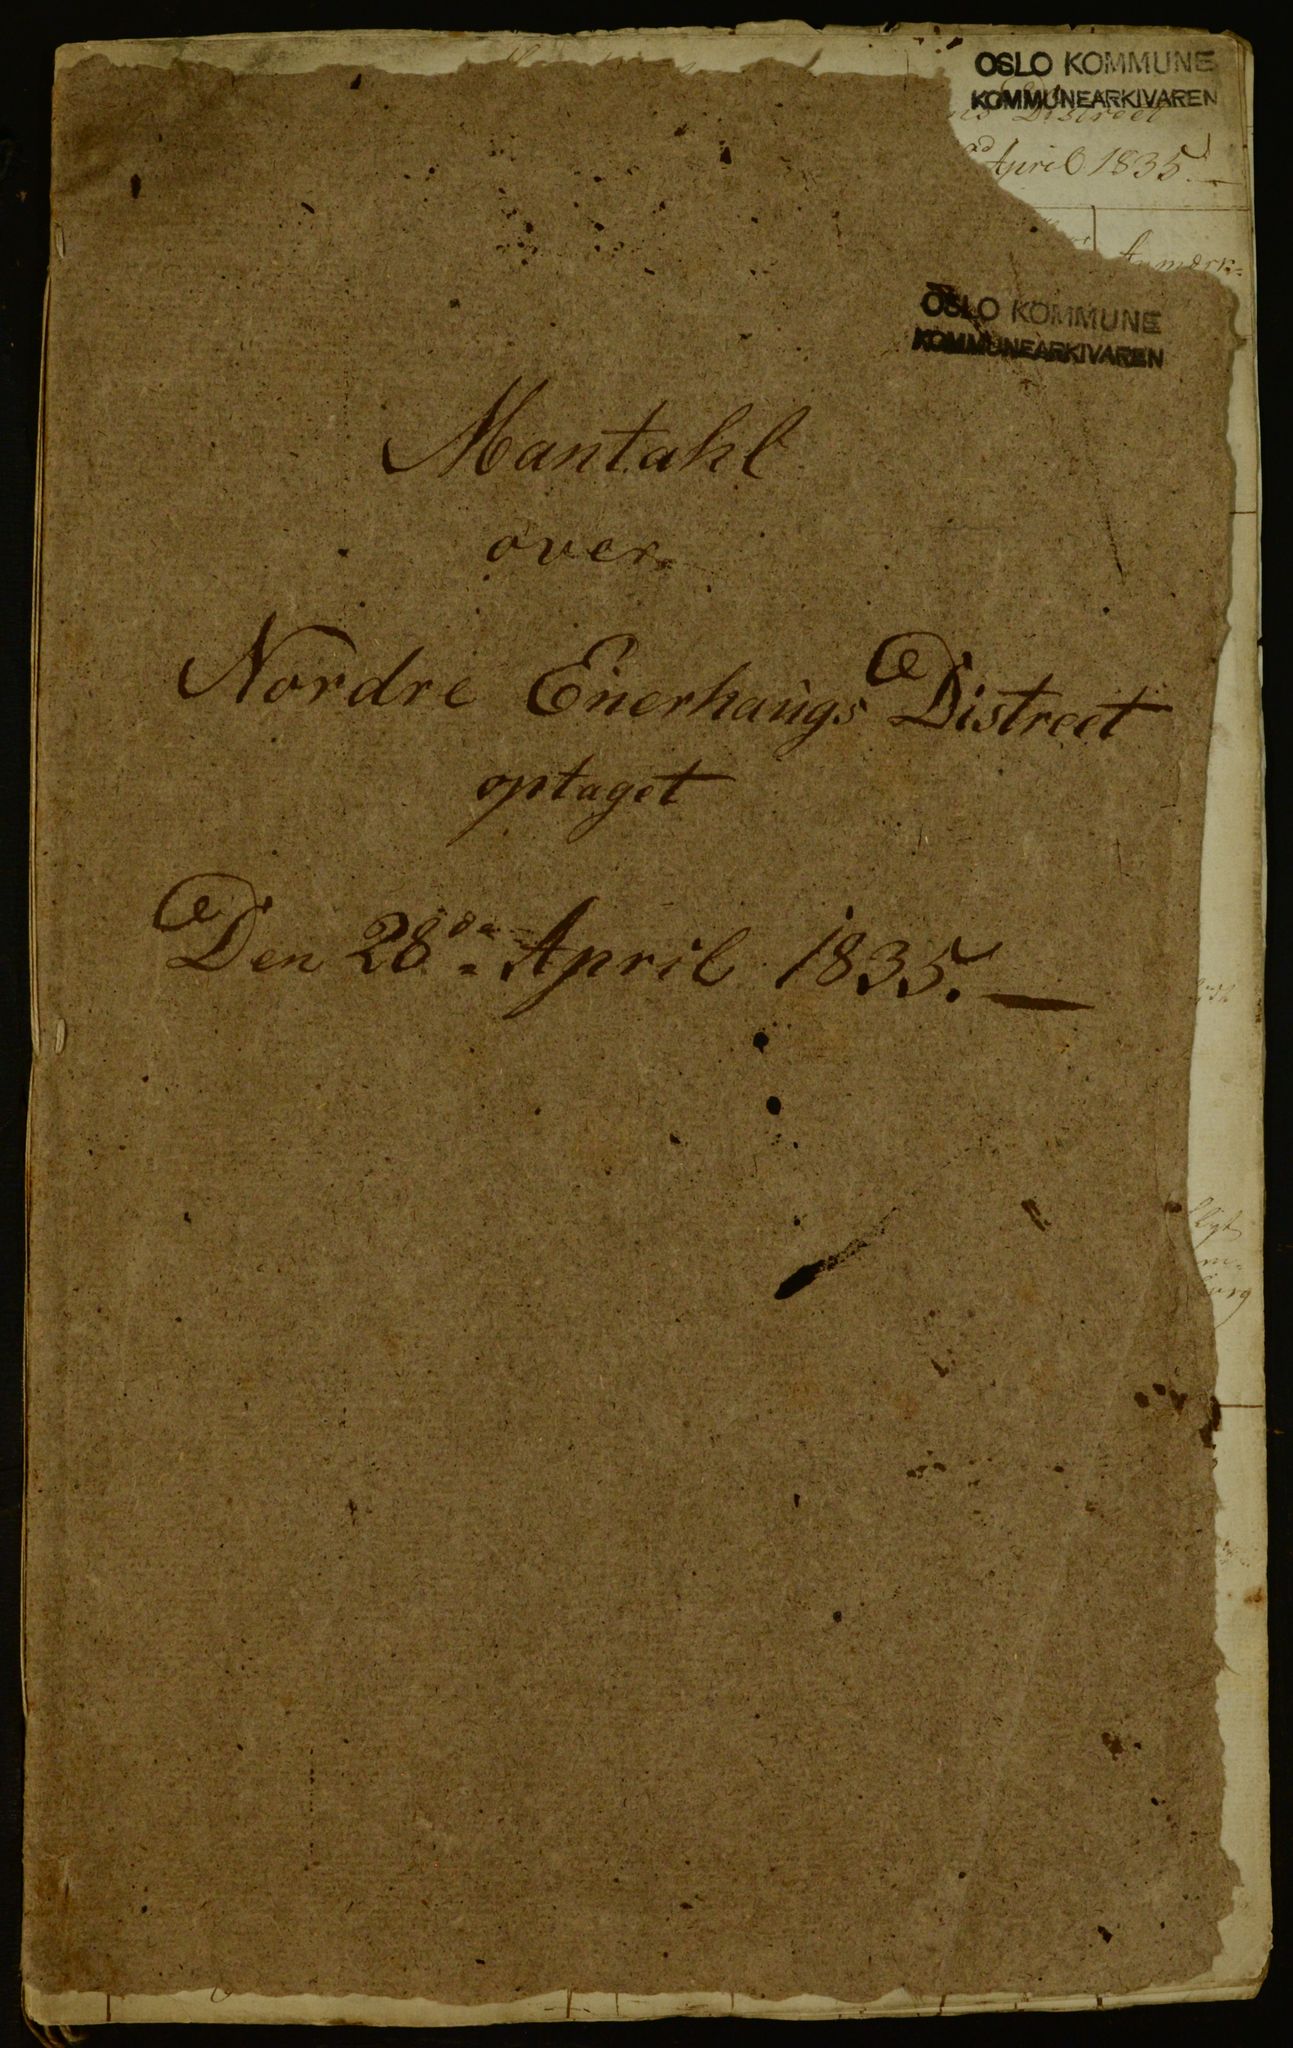 OSLO KOMMUNE
KOMMUNEARKIVAREN
Distreet
April 1835. —
Anmærk=
OSLO KOMMUNE
KOMMUNEARKIVAREN
Mantahl
over
Nordre Enerhaugs Distreet
optaget
Den 28de April 1835. —